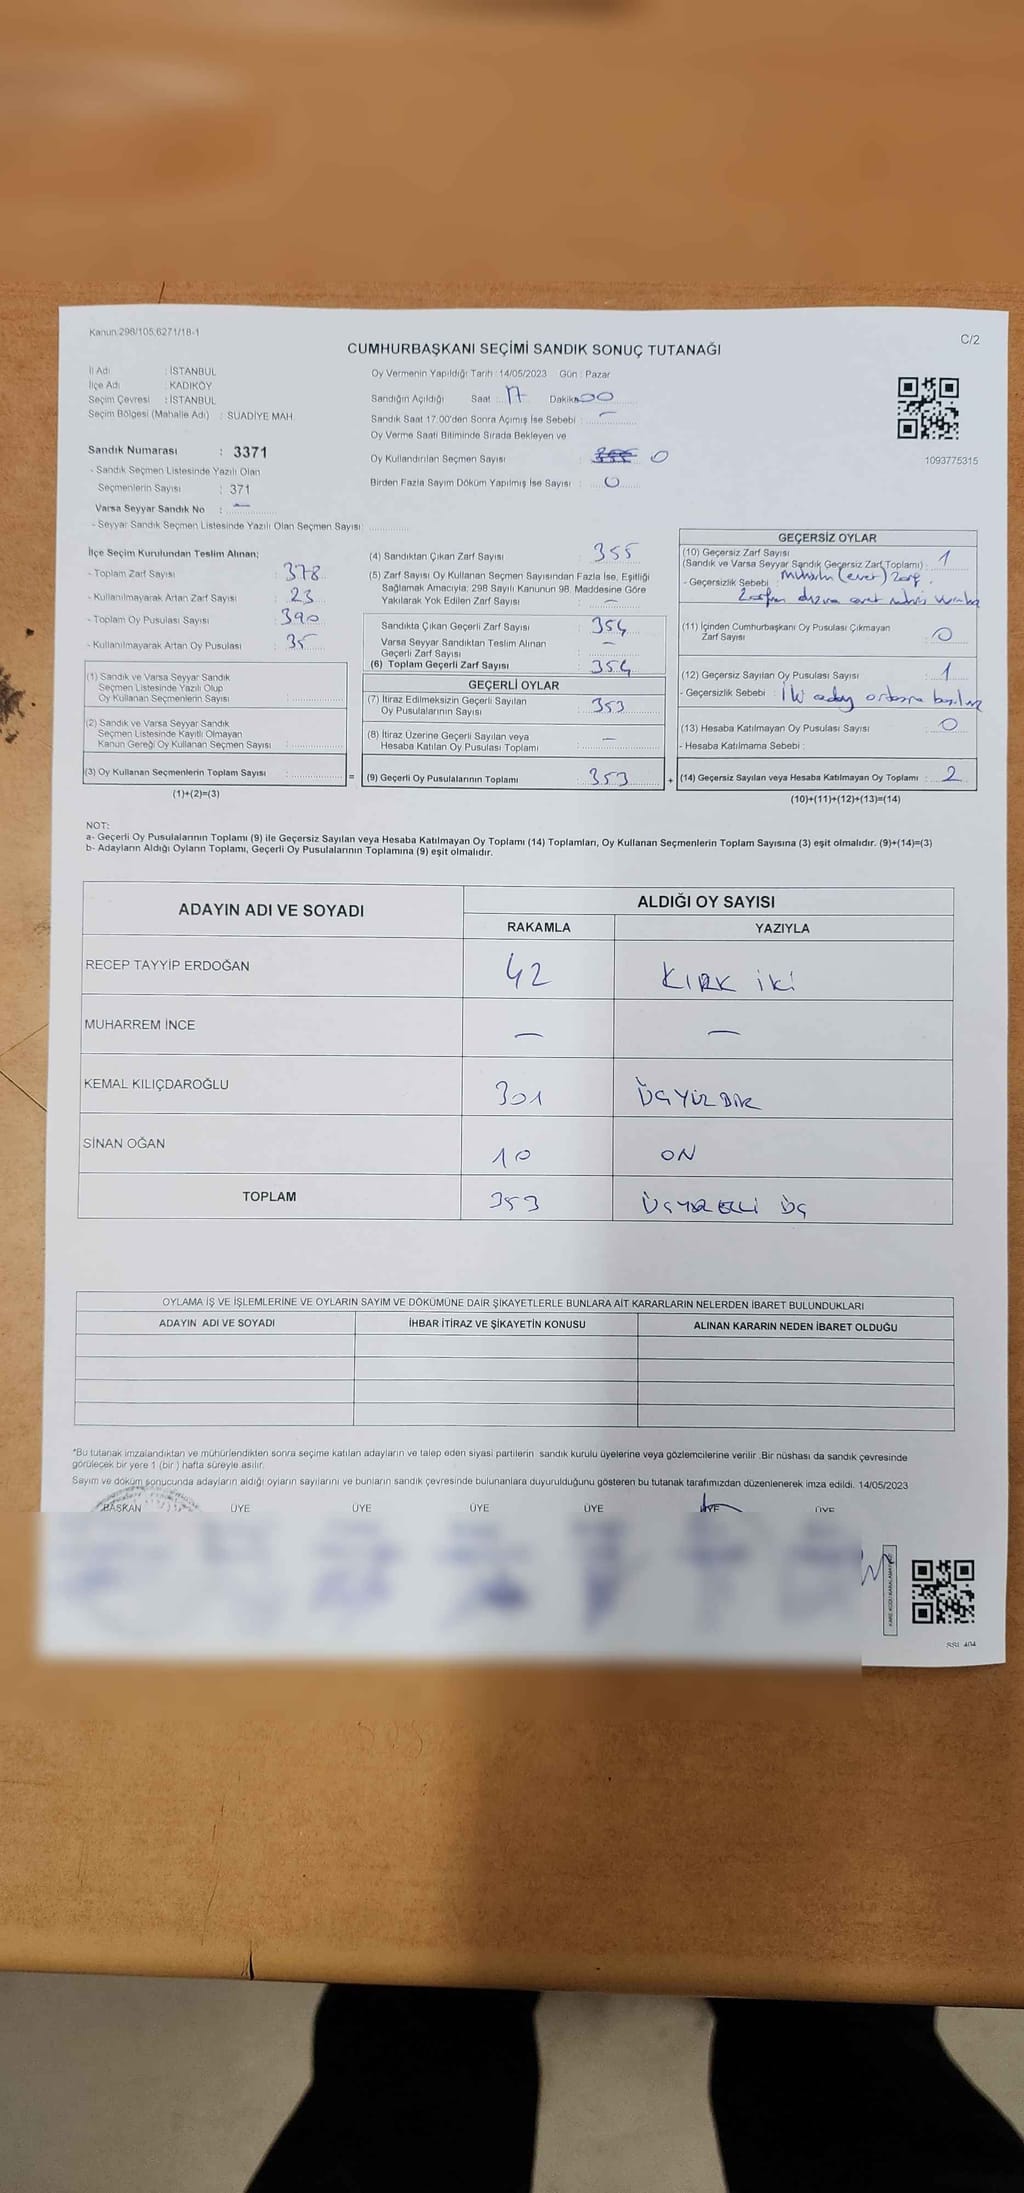 Kanun 298/105,6271/18-1
C/2
CUMHURBAŞKANI SEÇİMİ SANDIK SONUÇ TUTANAĞI
İl Adı : İSTANBUL
İlçe Adı : KADIKÖY
Seçim Çevresi : İSTANBUL
Seçim Bölgesi (Mahalle Adı) : SUADİYE MAH.
Sandık Numarası : 3371
- Sandık Seçmen Listesinde Yazılı Olan
Seçmenlerin Sayısı : 371
Varsa Seyyar Sandık No : —
- Seyyar Sandık Seçmen Listesinde Yazılı Olan Seçmen Sayısı
Oy Vermenin Yapıldığı Tarih : 14/05/2023 Gün : Pazar
Sandığın Açıldığı Saat 17 Dakika 00
Sandık Saat 17:00'den Sonra Açımış İse Sebebi : —
Oy Verme Saati Bitiminde Sırada Bekleyen ve
Oy Kullandırılan Seçmen Sayısı : 0
Birden Fazla Sayım Döküm Yapılmış İse Sayısı : 0
1093775315
İlçe Seçim Kurulundan Teslim Alınan;
- Toplam Zarf Sayısı : 378
- Kullanılmayarak Artan Zarf Sayısı : 23
- Toplam Oy Pusulası Sayısı : 390
- Kullanılmayarak Artan Oy Pusulası : 35
(1) Sandık ve Varsa Seyyar Sandık
Seçmen Listesinde Yazılı Olup
Oy Kullanan Seçmenlerin Sayısı :
(2) Sandık ve Varsa Seyyar Sandık
Seçmen Listesinde Kayıtlı Olmayan
Kanun Gereği Oy Kullanan Seçmen Sayısı :
(3) Oy Kullanan Seçmenlerin Toplam Sayısı :
(1)+(2)=(3)
(4) Sandıktan Çıkan Zarf Sayısı : 355
(5) Zarf Sayısı Oy Kullanan Seçmen Sayısından Fazla İse, Eşitliği
Sağlamak Amacıyla, 298 Sayılı Kanunun 98. Maddesine Göre
Yakılarak Yok Edilen Zarf Sayısı : —
Sandıkta Çıkan Geçerli Zarf Sayısı : 354
Varsa Seyyar Sandıktan Teslim Alınan
Geçerli Zarf Sayısı : —
(6) Toplam Geçerli Zarf Sayısı : 354
GEÇERLİ OYLAR
(7) İtiraz Edilmeksizin Geçerli Sayılan
Oy Pusulalarının Sayısı : 353
(8) İtiraz Üzerine Geçerli Sayılan veya
Hesaba Katılan Oy Pusulası Toplamı : —
= (9) Geçerli Oy Pusulalarının Toplamı : 353
GEÇERSİZ OYLAR
(10) Geçersiz Zarf Sayısı
(Sandık ve Varsa Seyyar Sandık Geçersiz Zarf Toplamı) : 1
- Geçersizlik Sebebi : mühürlü (evet) zarf.
Zarfın evet
(11) İçinden Cumhurbaşkanı Oy Pusulası Çıkmayan
Zarf Sayısı : 0
(12) Geçersiz Sayılan Oy Pusulası Sayısı : 1
- Geçersizlik Sebebi : İki aday ortasına
(13) Hesaba Katılmayan Oy Pusulası Sayısı : 0
- Hesaba Katılmama Sebebi :
+ (14) Geçersiz Sayılan veya Hesaba Katılmayan Oy Toplamı : 2
(10)+(11)+(12)+(13)=(14)
NOT:
a- Geçerli Oy Pusulalarının Toplamı (9) ile Geçersiz Sayılan veya Hesaba Katılmayan Oy Toplamı (14) Toplamları, Oy Kullanan Seçmenlerin Toplam Sayısına (3) eşit olmalıdır. (9)+(14)=(3)
b- Adayların Aldığı Oyların Toplamı, Geçerli Oy Pusulalarının Toplamına (9) eşit olmalıdır.
ADAYIN ADI VE SOYADI ALDIĞI OY SAYISI
RAKAMLA YAZIYLA
RECEP TAYYİP ERDOĞAN 42 KIRK iKi
MUHARREM İNCE — —
KEMAL KILIÇDAROĞLU 301 ÜÇYÜZBİR
SİNAN OĞAN 10 ON
TOPLAM 353 ÜÇYÜZ ELLİ ÜÇ
OYLAMA İŞ VE İŞLEMLERİNE VE OYLARIN SAYIM VE DÖKÜMÜNE DAİR ŞİKAYETLERLE BUNLARA AİT KARARLARIN NELERDEN İBARET BULUNDUKLARI
ADAYIN ADI VE SOYADI İHBAR İTİRAZ VE ŞİKAYETİN KONUSU ALINAN KARARIN NEDEN İBARET OLDUĞU
*Bu tutanak imzalandıktan ve mühürlendikten sonra seçime katılan adayların ve talep eden siyasi partilerin sandık kurulu üyelerine veya gözlemcilerine verilir .Bir nüshası da sandık çevresinde
görülecek bir yere 1 (bir ) hafta süreyle asılır.
Sayım ve döküm sonucunda adayların aldığı oyların sayılarını ve bunların sandık çevresinde bulunanlara duyurulduğunu gösteren bu tutanak tarafımızdan düzenlenerek imza edildi. 14/05/2023
BAŞKAN ÜYE ÜYE ÜYE ÜYE ÜYE ÜYE